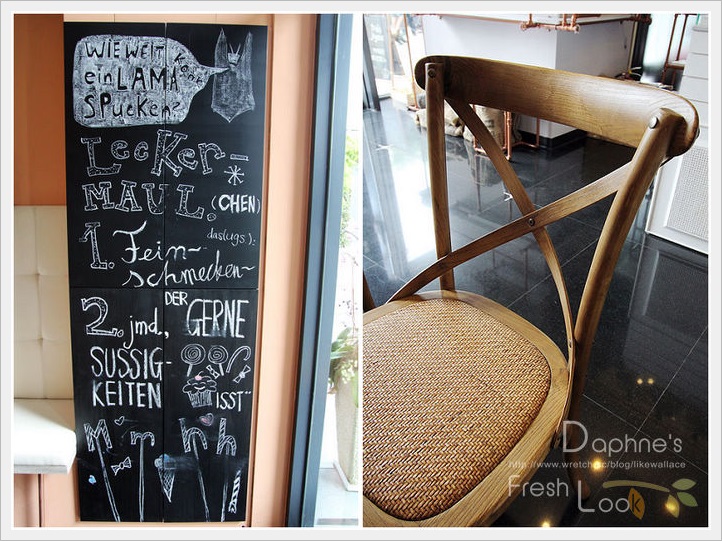 WIE WEIT
kann
ein LAMA
SPucKEN?
LecKer-
MAUL.(CHEN)
das(ugs.):
1. Fein-
schmecken-
2. jmd., DER GERNE
SÜSSIG-
KEITEN
ISST"
Daphne's
http://www.wretch.cc/blog/likewallace
Fresh Look